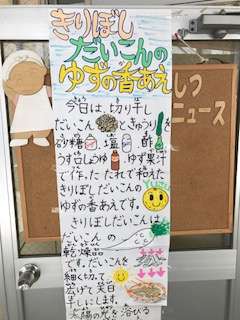 きりぼし
だいこんの
ゆずの香あえ
今日は、切り干し
だいこんときゅうりを
砂糖、塩、酢
うす口しょうゆ、ゆず果汁
で作ったたれで和えた
きりぼしだいこんの
ゆずの香あえです。
きりぼしだいこんは
だいこんの
乾燥品
です。だいこんを
細く切って
広げて天日
干しにします。
太陽の光を浴びる
しつ
ニュース